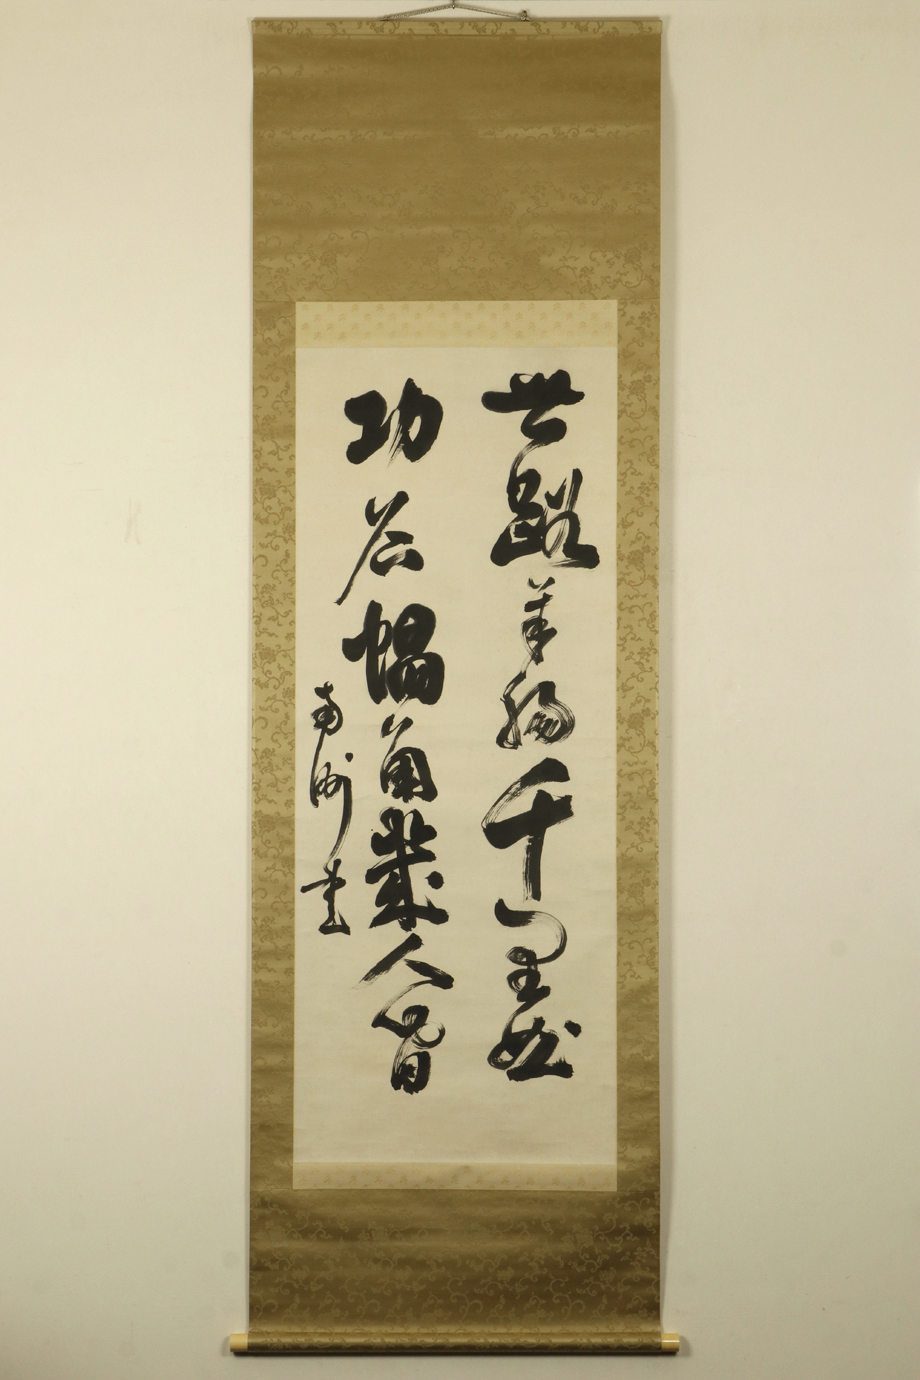 世路羊腸千里
功名蝸角幾人
南洲書